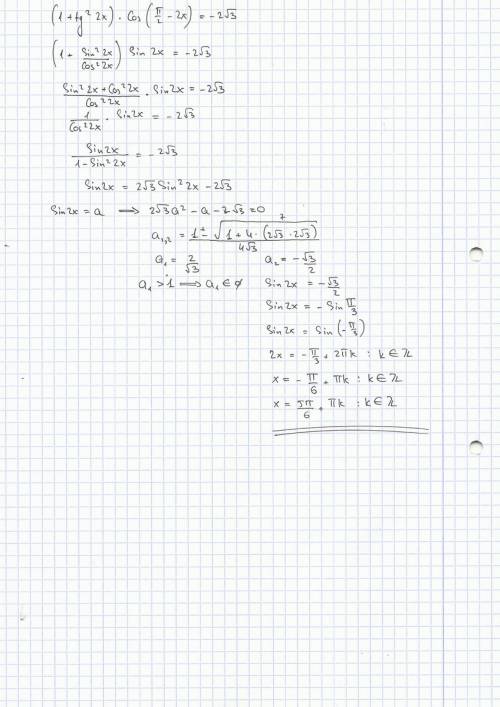 (1 + tg² 2x) · Cos(π/2 - 2x) = -2√3
(1 + Sin² 2x / Cos² 2x) Sin 2x = -2√3
(Sin² 2x + Cos² 2x) / Cos² 2x · Sin2x = -2√3
1 / Cos² 2x · Sin2x = -2√3
Sin2x / (1 - Sin² 2x) = -2√3
Sin2x = 2√3 Sin² 2x - 2√3
Sin2x = a ⟹ 2√3 a² - a - 2√3 = 0
a₁,₂ = (1 ± √(1 + 4 · (2√3 · 2√3))) / 4√3
7
a₁ = 2/√3 a₂ = -√3/2
a₁ > 1 ⟹ a₁ ∈ ∅ Sin2x = -√3/2
Sin2x = - Sin π/3
Sin2x = Sin(-π/3)
2x = -π/3 + 2πk : k ∈ ℤ
x = -π/6 + πk : k ∈ ℤ
x = 5π/6 + πk : k ∈ ℤ